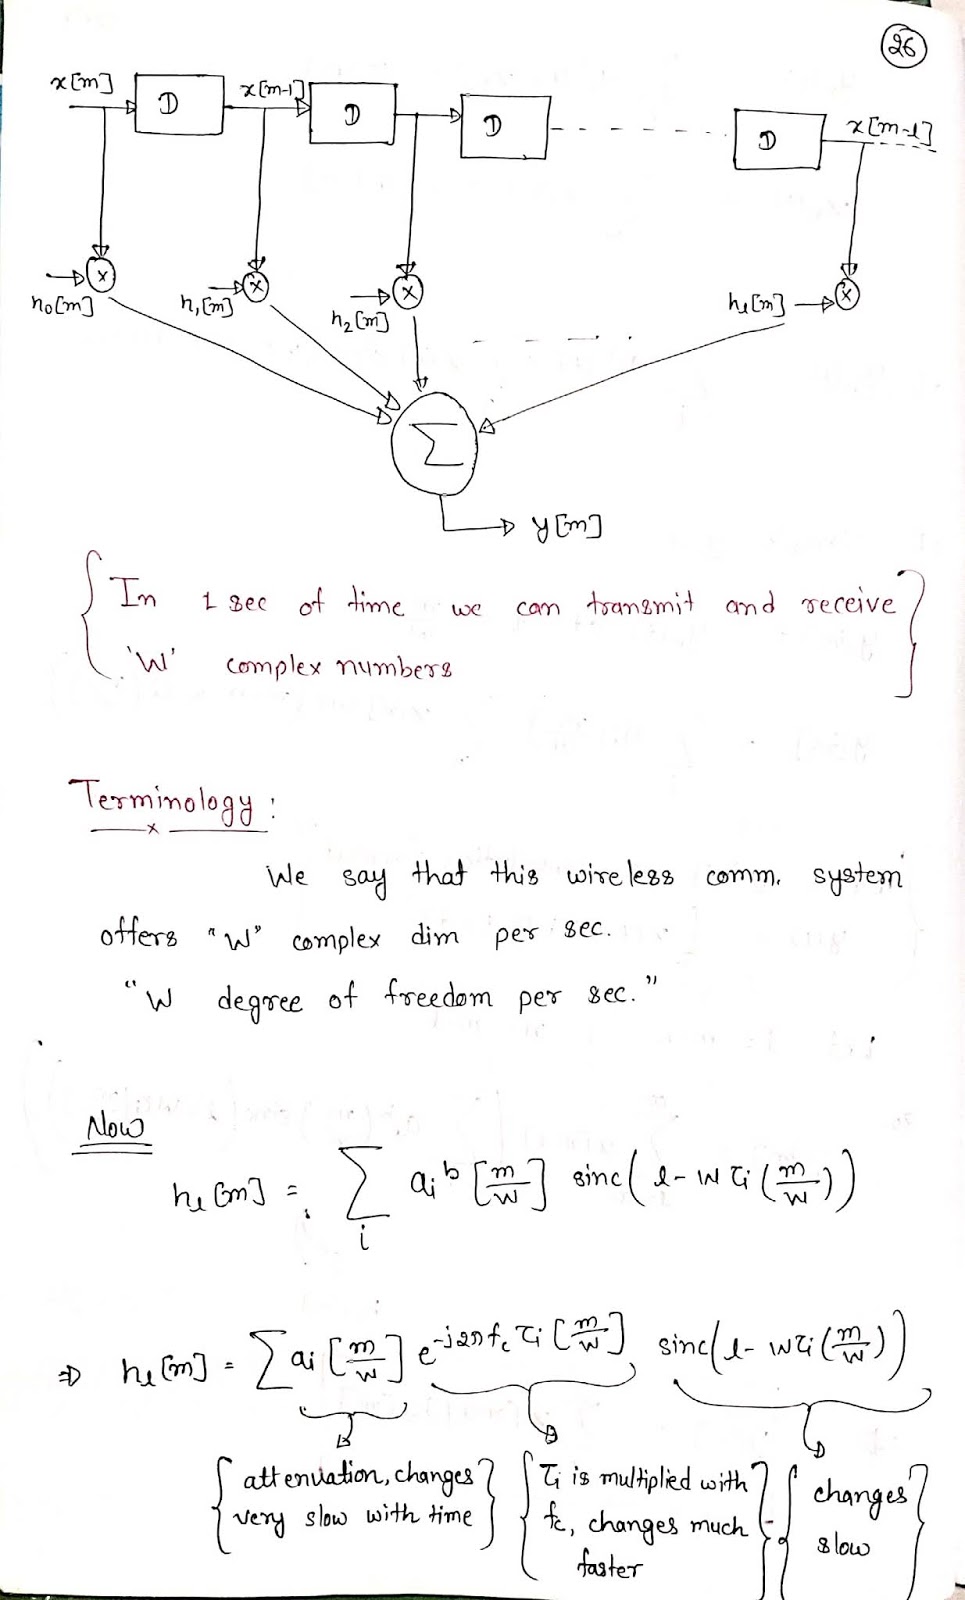 26
x[m] D x[m-1] D D D x[m-l]
h₀[m] × h₁[m] × h₂[m] × hₗ[m] ×
Σ
y[m]
In 1 sec of time we can transmit and receive
'W' complex numbers
Terminology :
We say that this wireless comm. system
offers "W" complex dim per sec.
"W degree of freedom per sec."
Now
hₗ[m] = Σᵢ aᵢᵇ [m/W] sinc(l - Wτᵢ(m/W))
⇒ hₗ[m] = Σ aᵢ [m/W] e^(-j2πf_c τᵢ[m/W]) sinc(l - Wτᵢ(m/W))
attenuation, changes
very slow with time
τᵢ is multiplied with
fc, changes much
faster
changes
slow